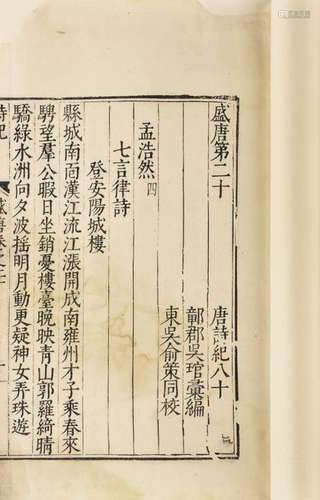 盛唐第二十　唐詩紀八十
鄣郡吳琯彙編
東吳俞策同校
孟浩然 四
七言律詩
登安陽城樓
縣城南面漢江流江漲開成南雍州才子乘春來
騁望羣公暇日坐銷憂樓臺晚映青山郭羅綺晴
驕綠水洲向夕波搖明月動更疑神女弄珠遊